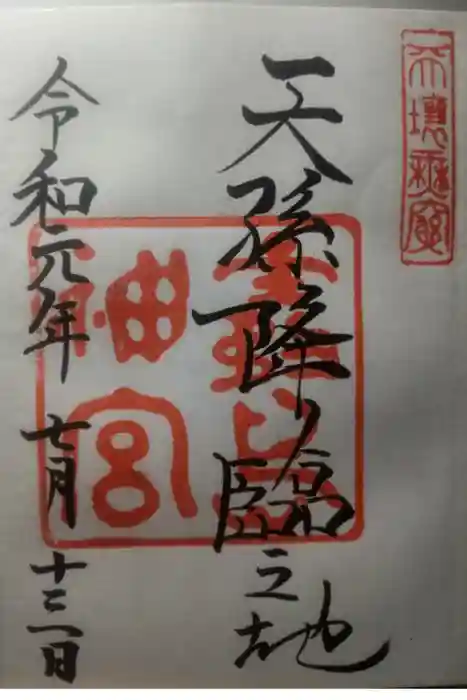 天壌無窮
天孫降臨之地
神宮
令和元年七月十三日